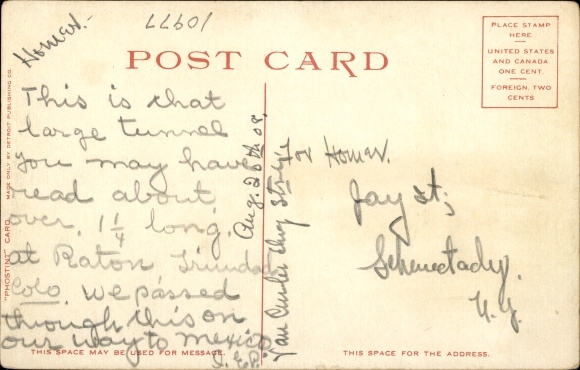 Homer.
10977
POST CARD
PLACE STAMP
HERE.
UNITED STATES
AND CANADA
ONE CENT.
FOREIGN, TWO
CENTS
This is that
large tunnel
you may have
read about
over, 1 1/4 long,
at Raton Trinidad
Colo. We passed
through this on
our way to Mexico
J. E.P.
Aug. 26th 08,
Van Curler
For Homer.
Jay St;
Schenectady.
N. Y.
"PHOSTINT" CARD
MADE ONLY BY DETROIT PUBLISHING CO.
THIS SPACE MAY BE USED FOR MESSAGE.
THIS SPACE FOR THE ADDRESS.